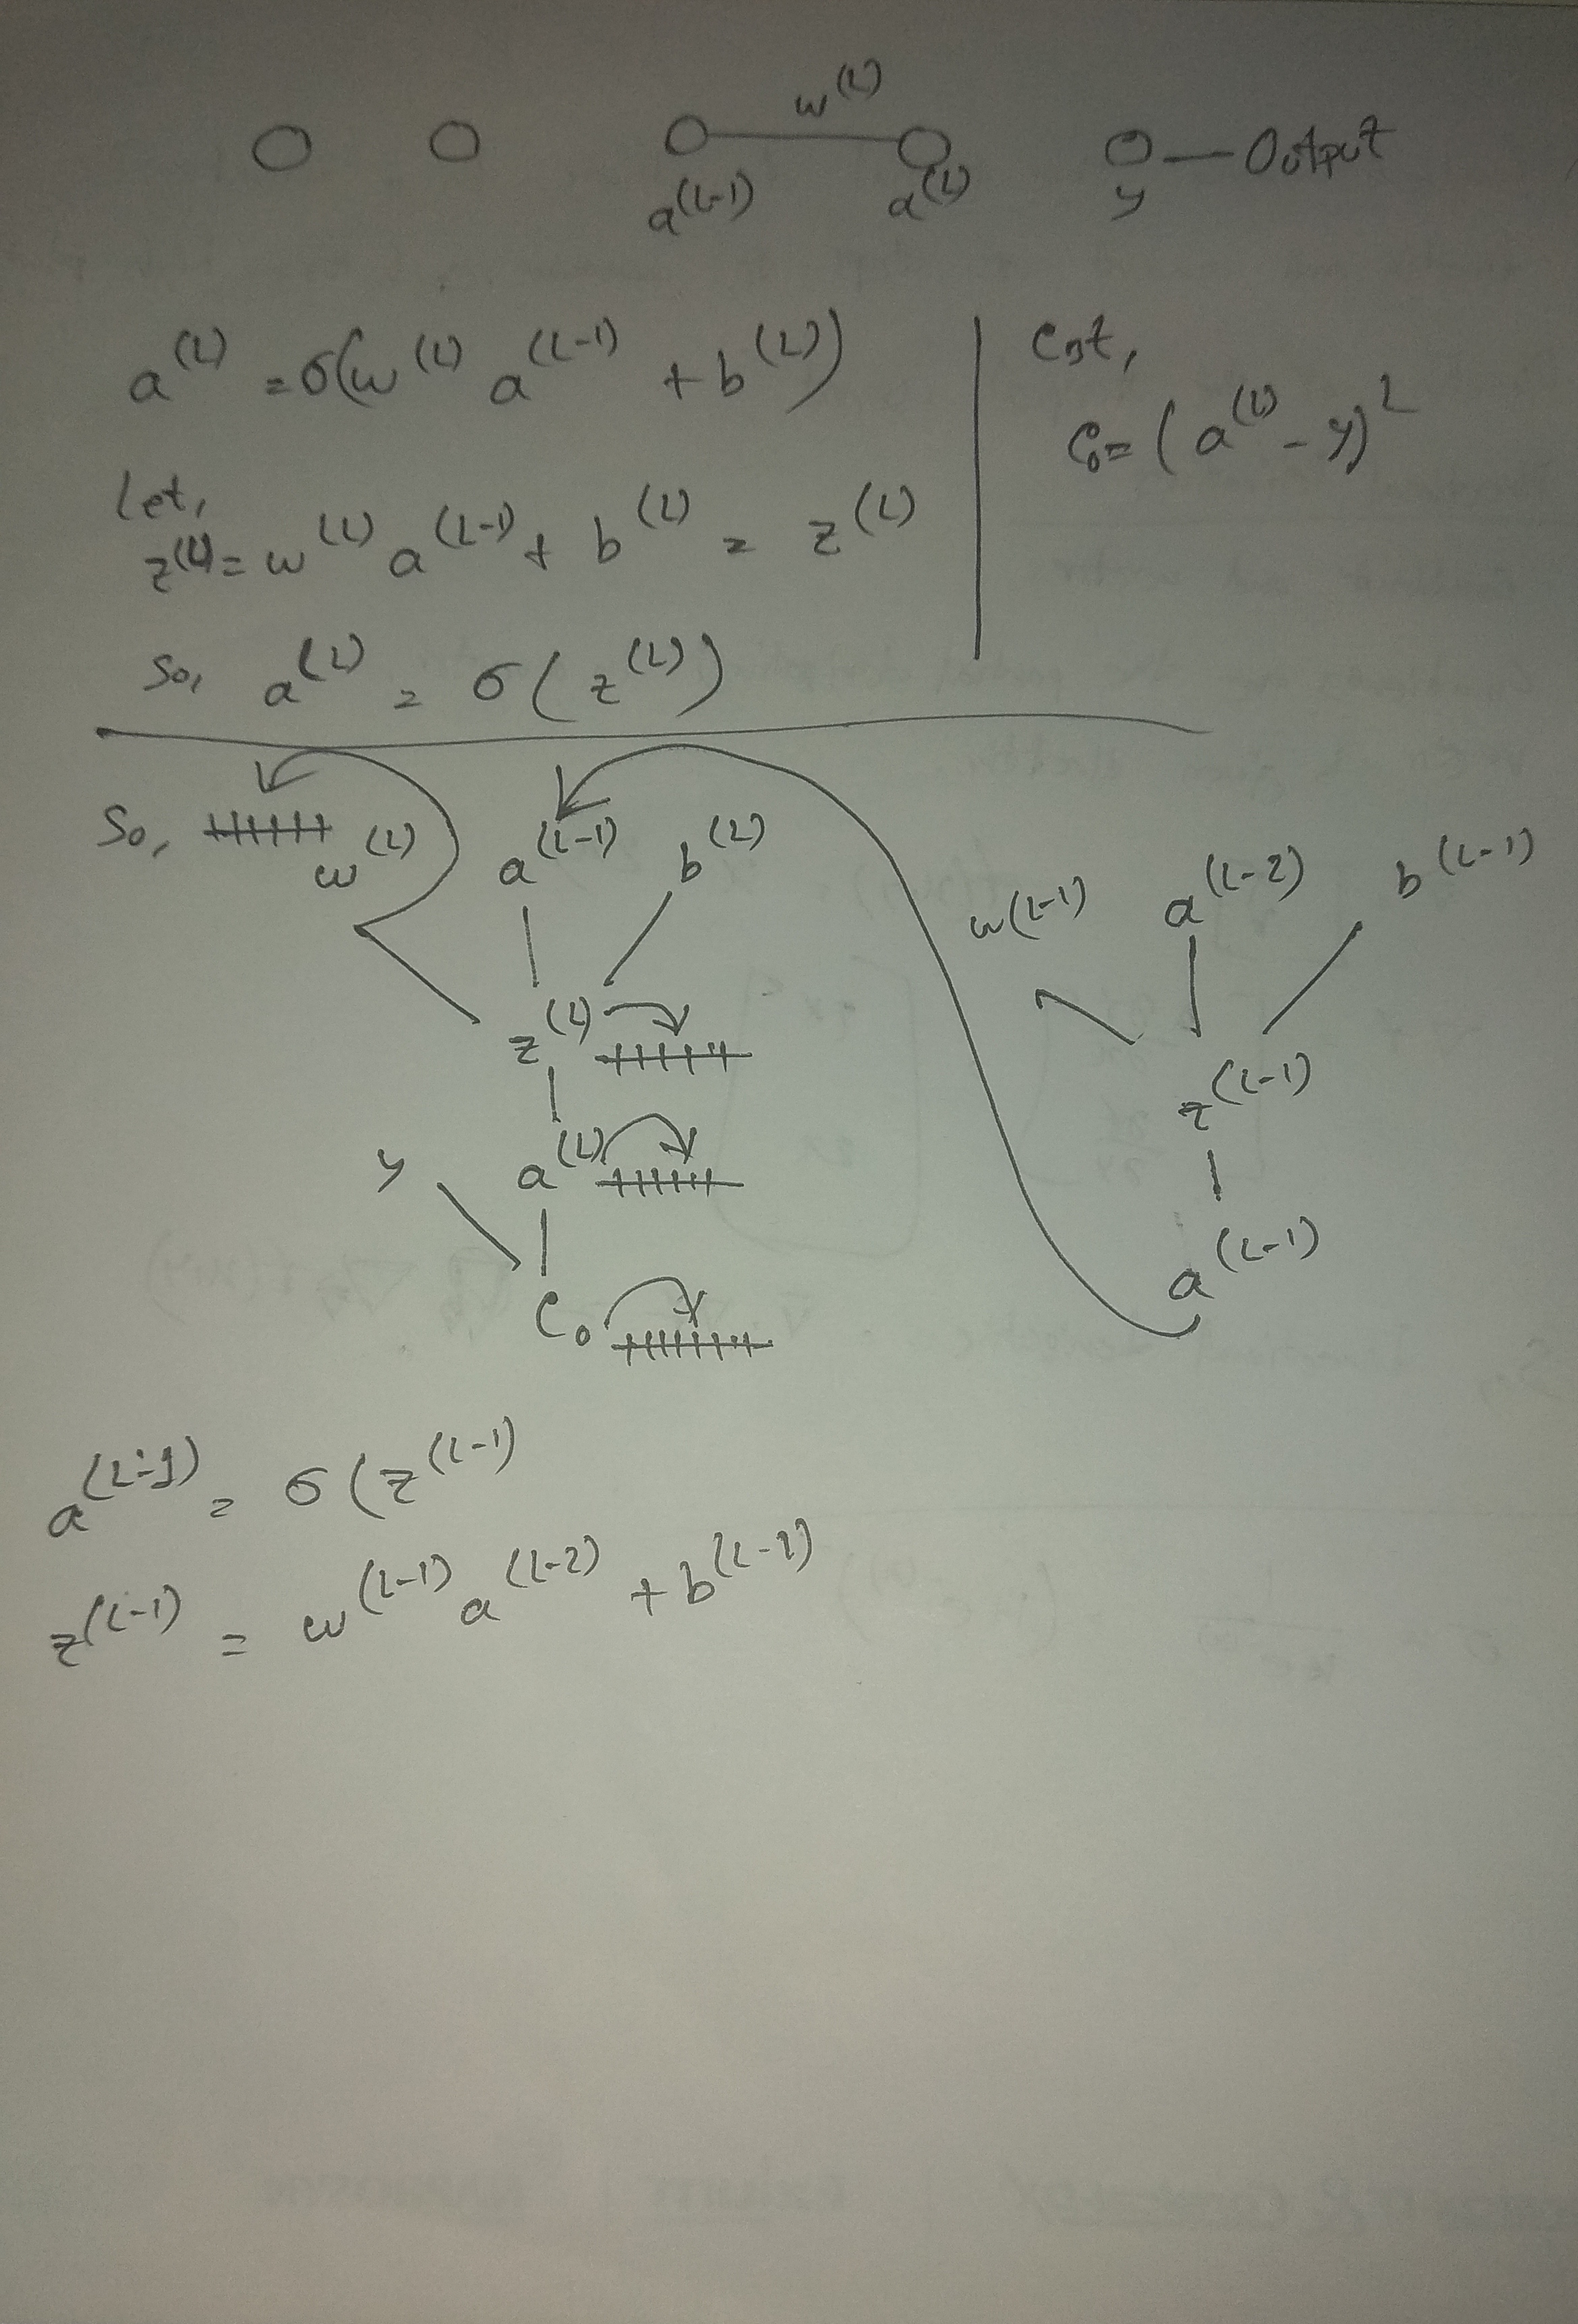 w^(L)
a^(L-1) a^(L) y — Output
a^(L) = σ(w^(L) a^(L-1) + b^(L))
Cost,
C₀ = (a^(L) - y)²
Let,
z^(L) = w^(L) a^(L-1) + b^(L) = z^(L)
So, a^(L) = σ(z^(L))
So, w^(L) a^(L-1) b^(L)
z^(L)
y a^(L)
C₀
w^(L-1) a^(L-2) b^(L-1)
z^(L-1)
a^(L-1)
a^(L-1) = σ(z^(L-1)
z^(L-1) = w^(L-1) a^(L-2) + b^(L-1)